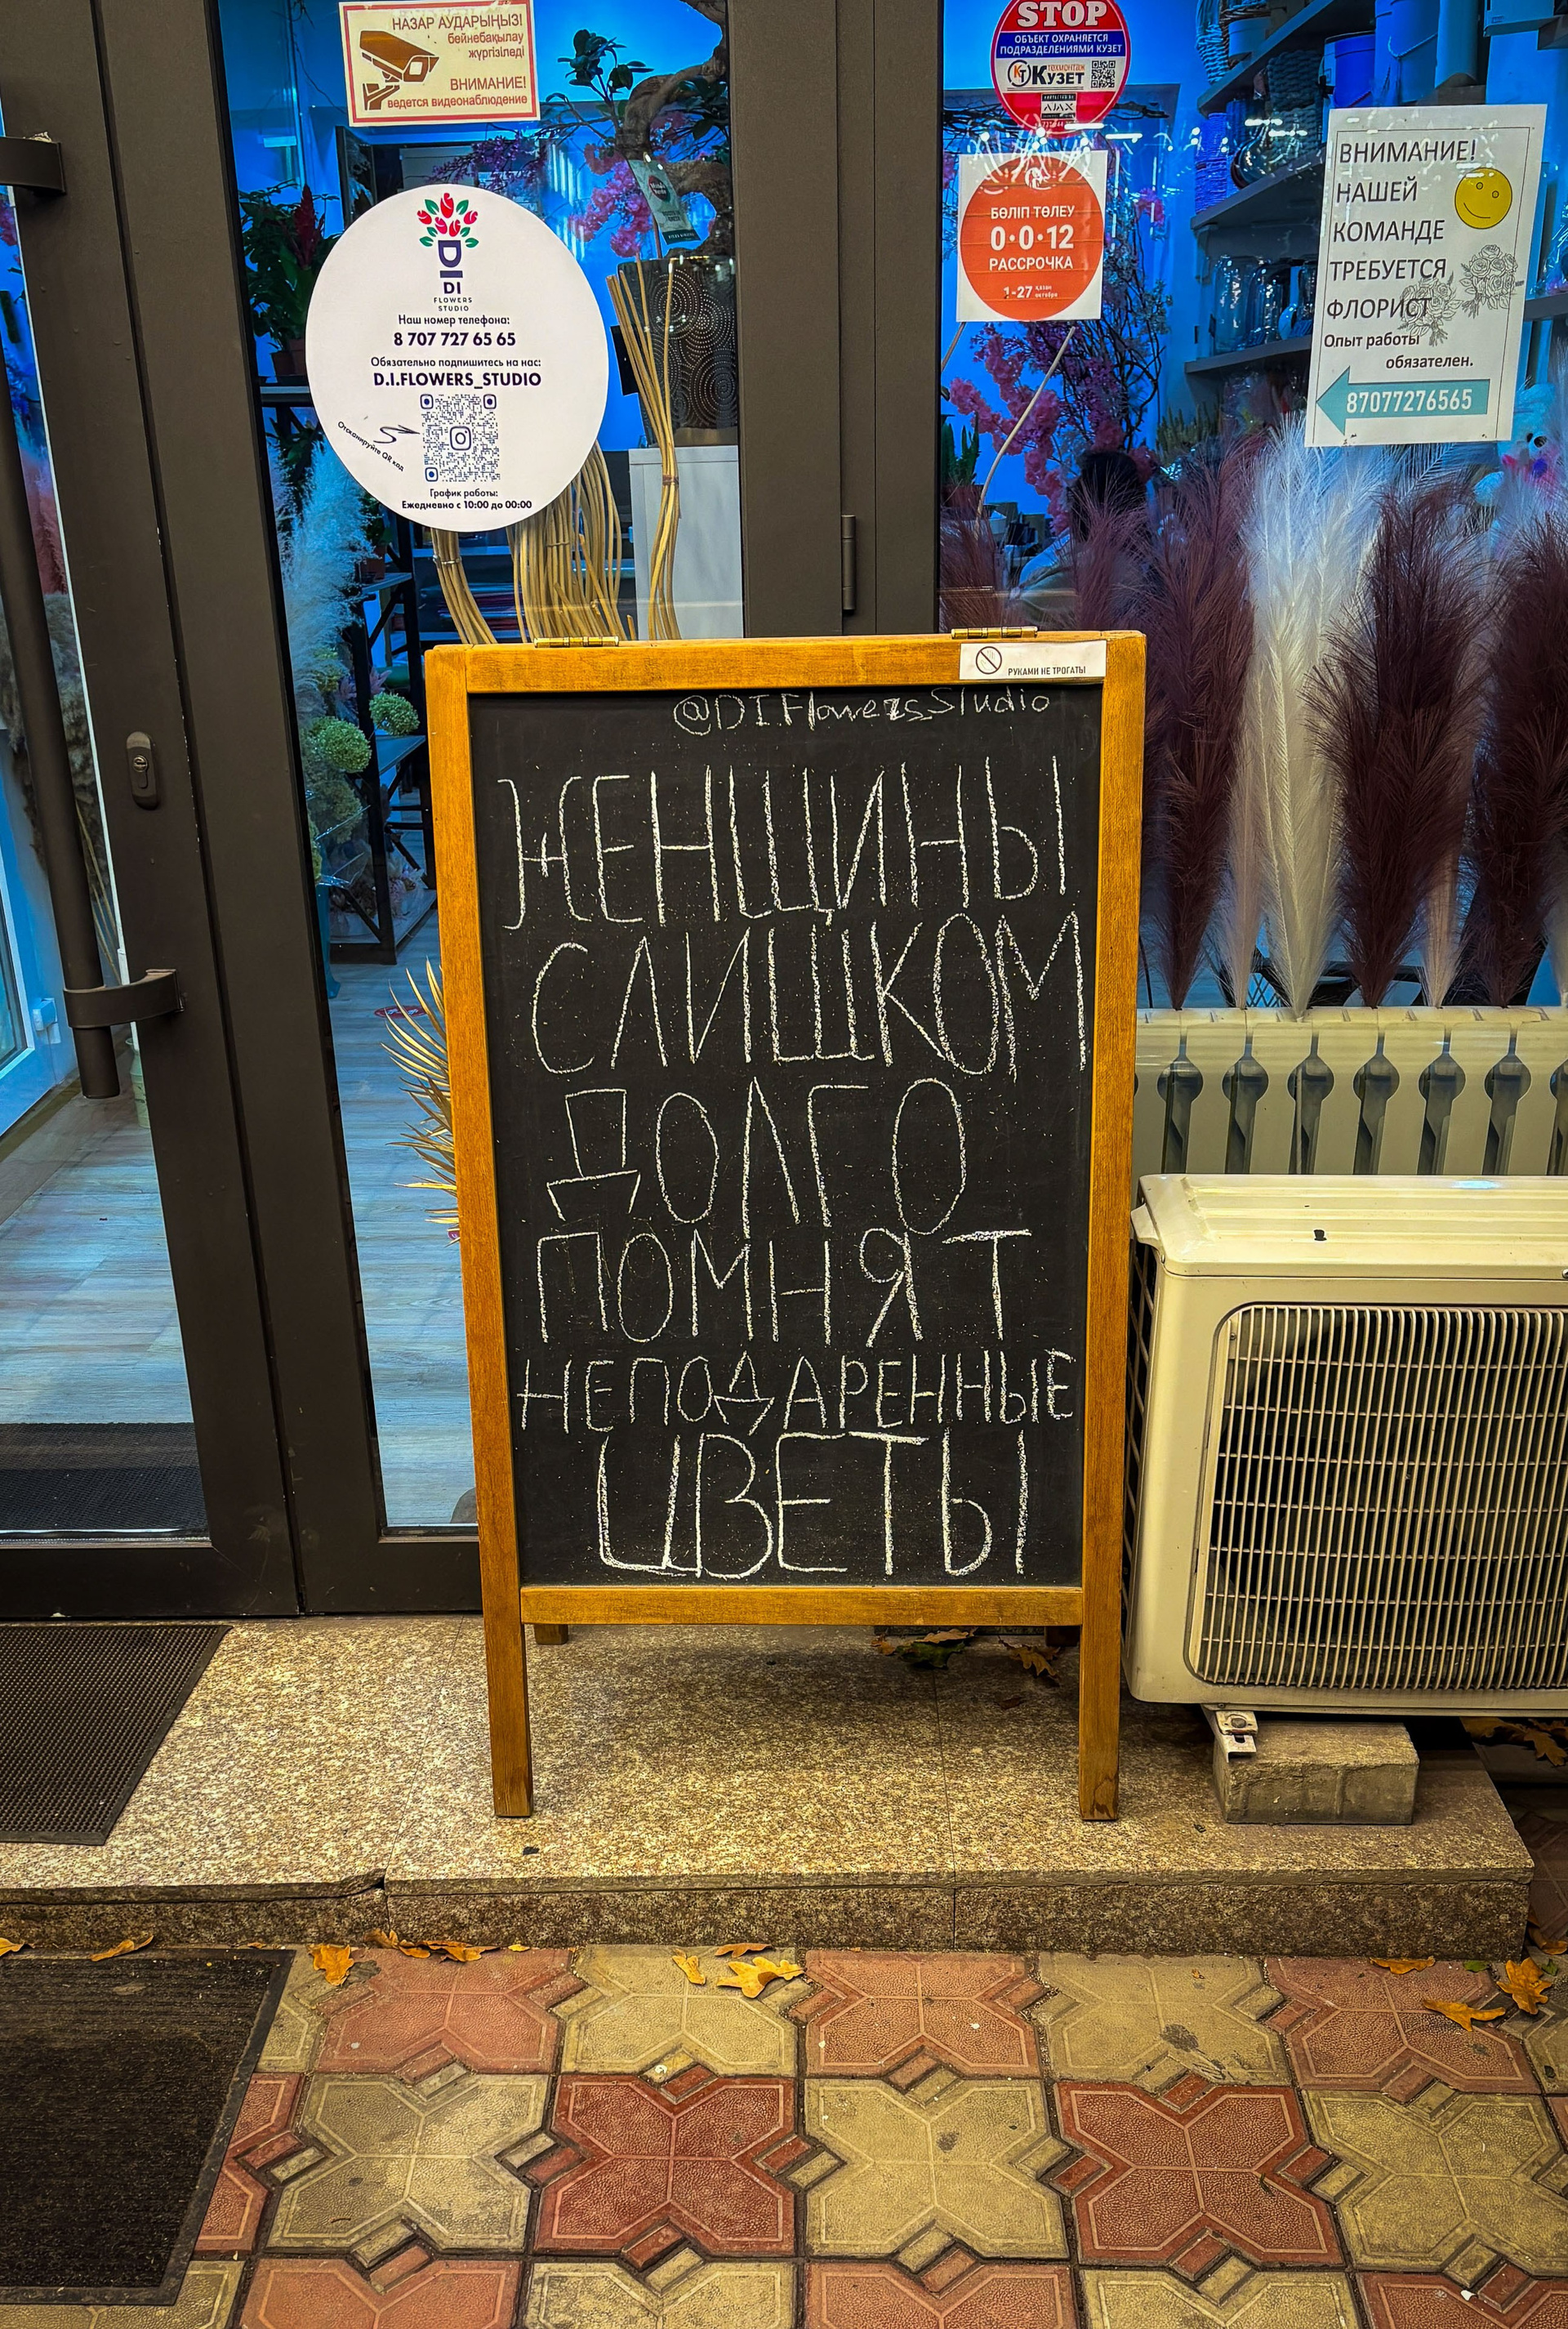 НАЗАР АУДАРЫҢЫЗ!
бейнебақылау
жүргізіледі
ВНИМАНИЕ!
ведется видеонаблюдение
DI
DI
FLOWERS
STUDIO
Наш номер телефона:
8 707 727 65 65
Обязательно подпишитесь на нас:
D.I.FLOWERS_STUDIO
Отсканируйте QR код
График работы:
Ежедневно с 10:00 до 00:00
STOP
ОБЪЕКТ ОХРАНЯЕТСЯ
ПОДРАЗДЕЛЕНИЯМИ КУЗЕТ
КТ техмонтаж
КУЗЕТ
AJAX
БӨЛІП ТӨЛЕУ
0·0·12
РАССРОЧКА
1-27 қазан
октября
ВНИМАНИЕ!
НАШЕЙ
КОМАНДЕ
ТРЕБУЕТСЯ
ФЛОРИСТ
Опыт работы
обязателен.
87077276565
РУКАМИ НЕ ТРОГАТЬ!
@DI.Flowers_Studio
ЖЕНЩИНЫ
СЛИШКОМ
ДОЛГО
ПОМНЯТ
НЕПОДАРЕННЫЕ
ЦВЕТЫ